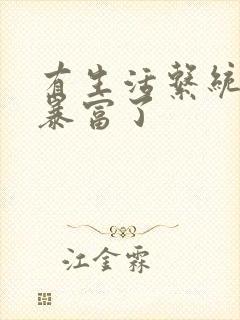 有生活繫統
暴富了
江金霖